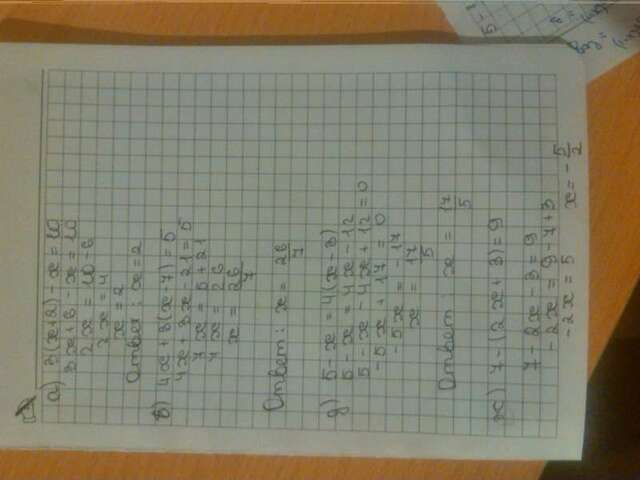 а) 3(x+2) - x = 10
3x + 6 - x = 10
2x = 10 - 6
2x = 4
x = 2
Ответ: x = 2
в) 4x + 3(x - 7) = 5
4x + 3x - 21 = 5
7x = 5 + 21
7x = 26
x = 26/7
Ответ: x = 26/7
д) 5 - x = 4(x - 3)
5 - x = 4x - 12
5 - x - 4x + 12 = 0
-5x + 17 = 0
-5x = -17
x = 17/5
Ответ: x = 17/5
ж) 7 - (2x + 3) = 9
7 - 2x - 3 = 9
-2x = 9 - 7 + 3
-2x = 5 x = -5/2